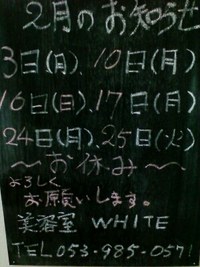 2月のお知らせ
3日(月)、10日(月)
16日(日)、17日(月)
24日(月)、25日(火)
〜お休み〜
よろしく
お願いします。
美容室 WHITE
TEL 053-985-0571